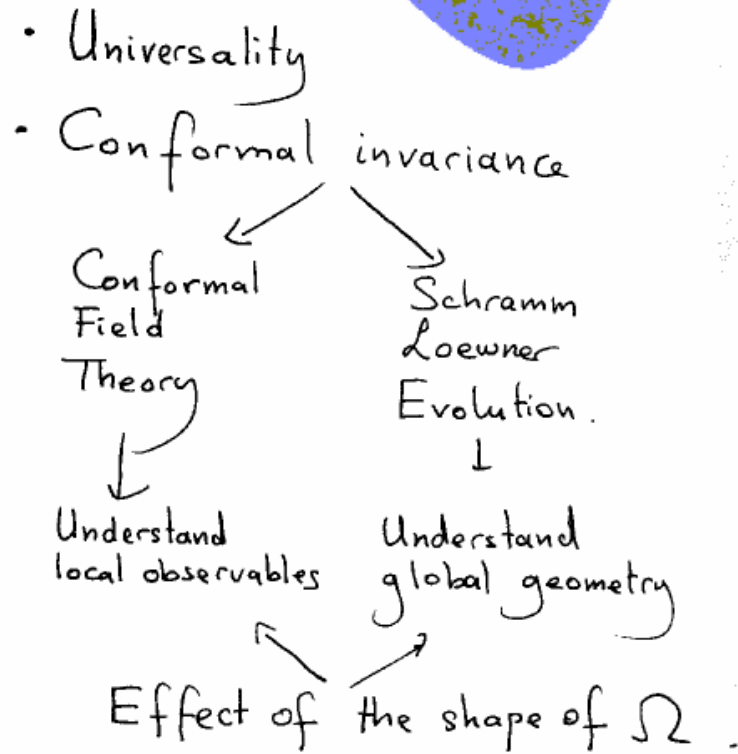 · Universality
· Conformal invariance
Conformal
Field
Theory
Schramm
Loewner
Evolution.
Understand
local observables
Understand
global geometry
Effect of the shape of Ω.